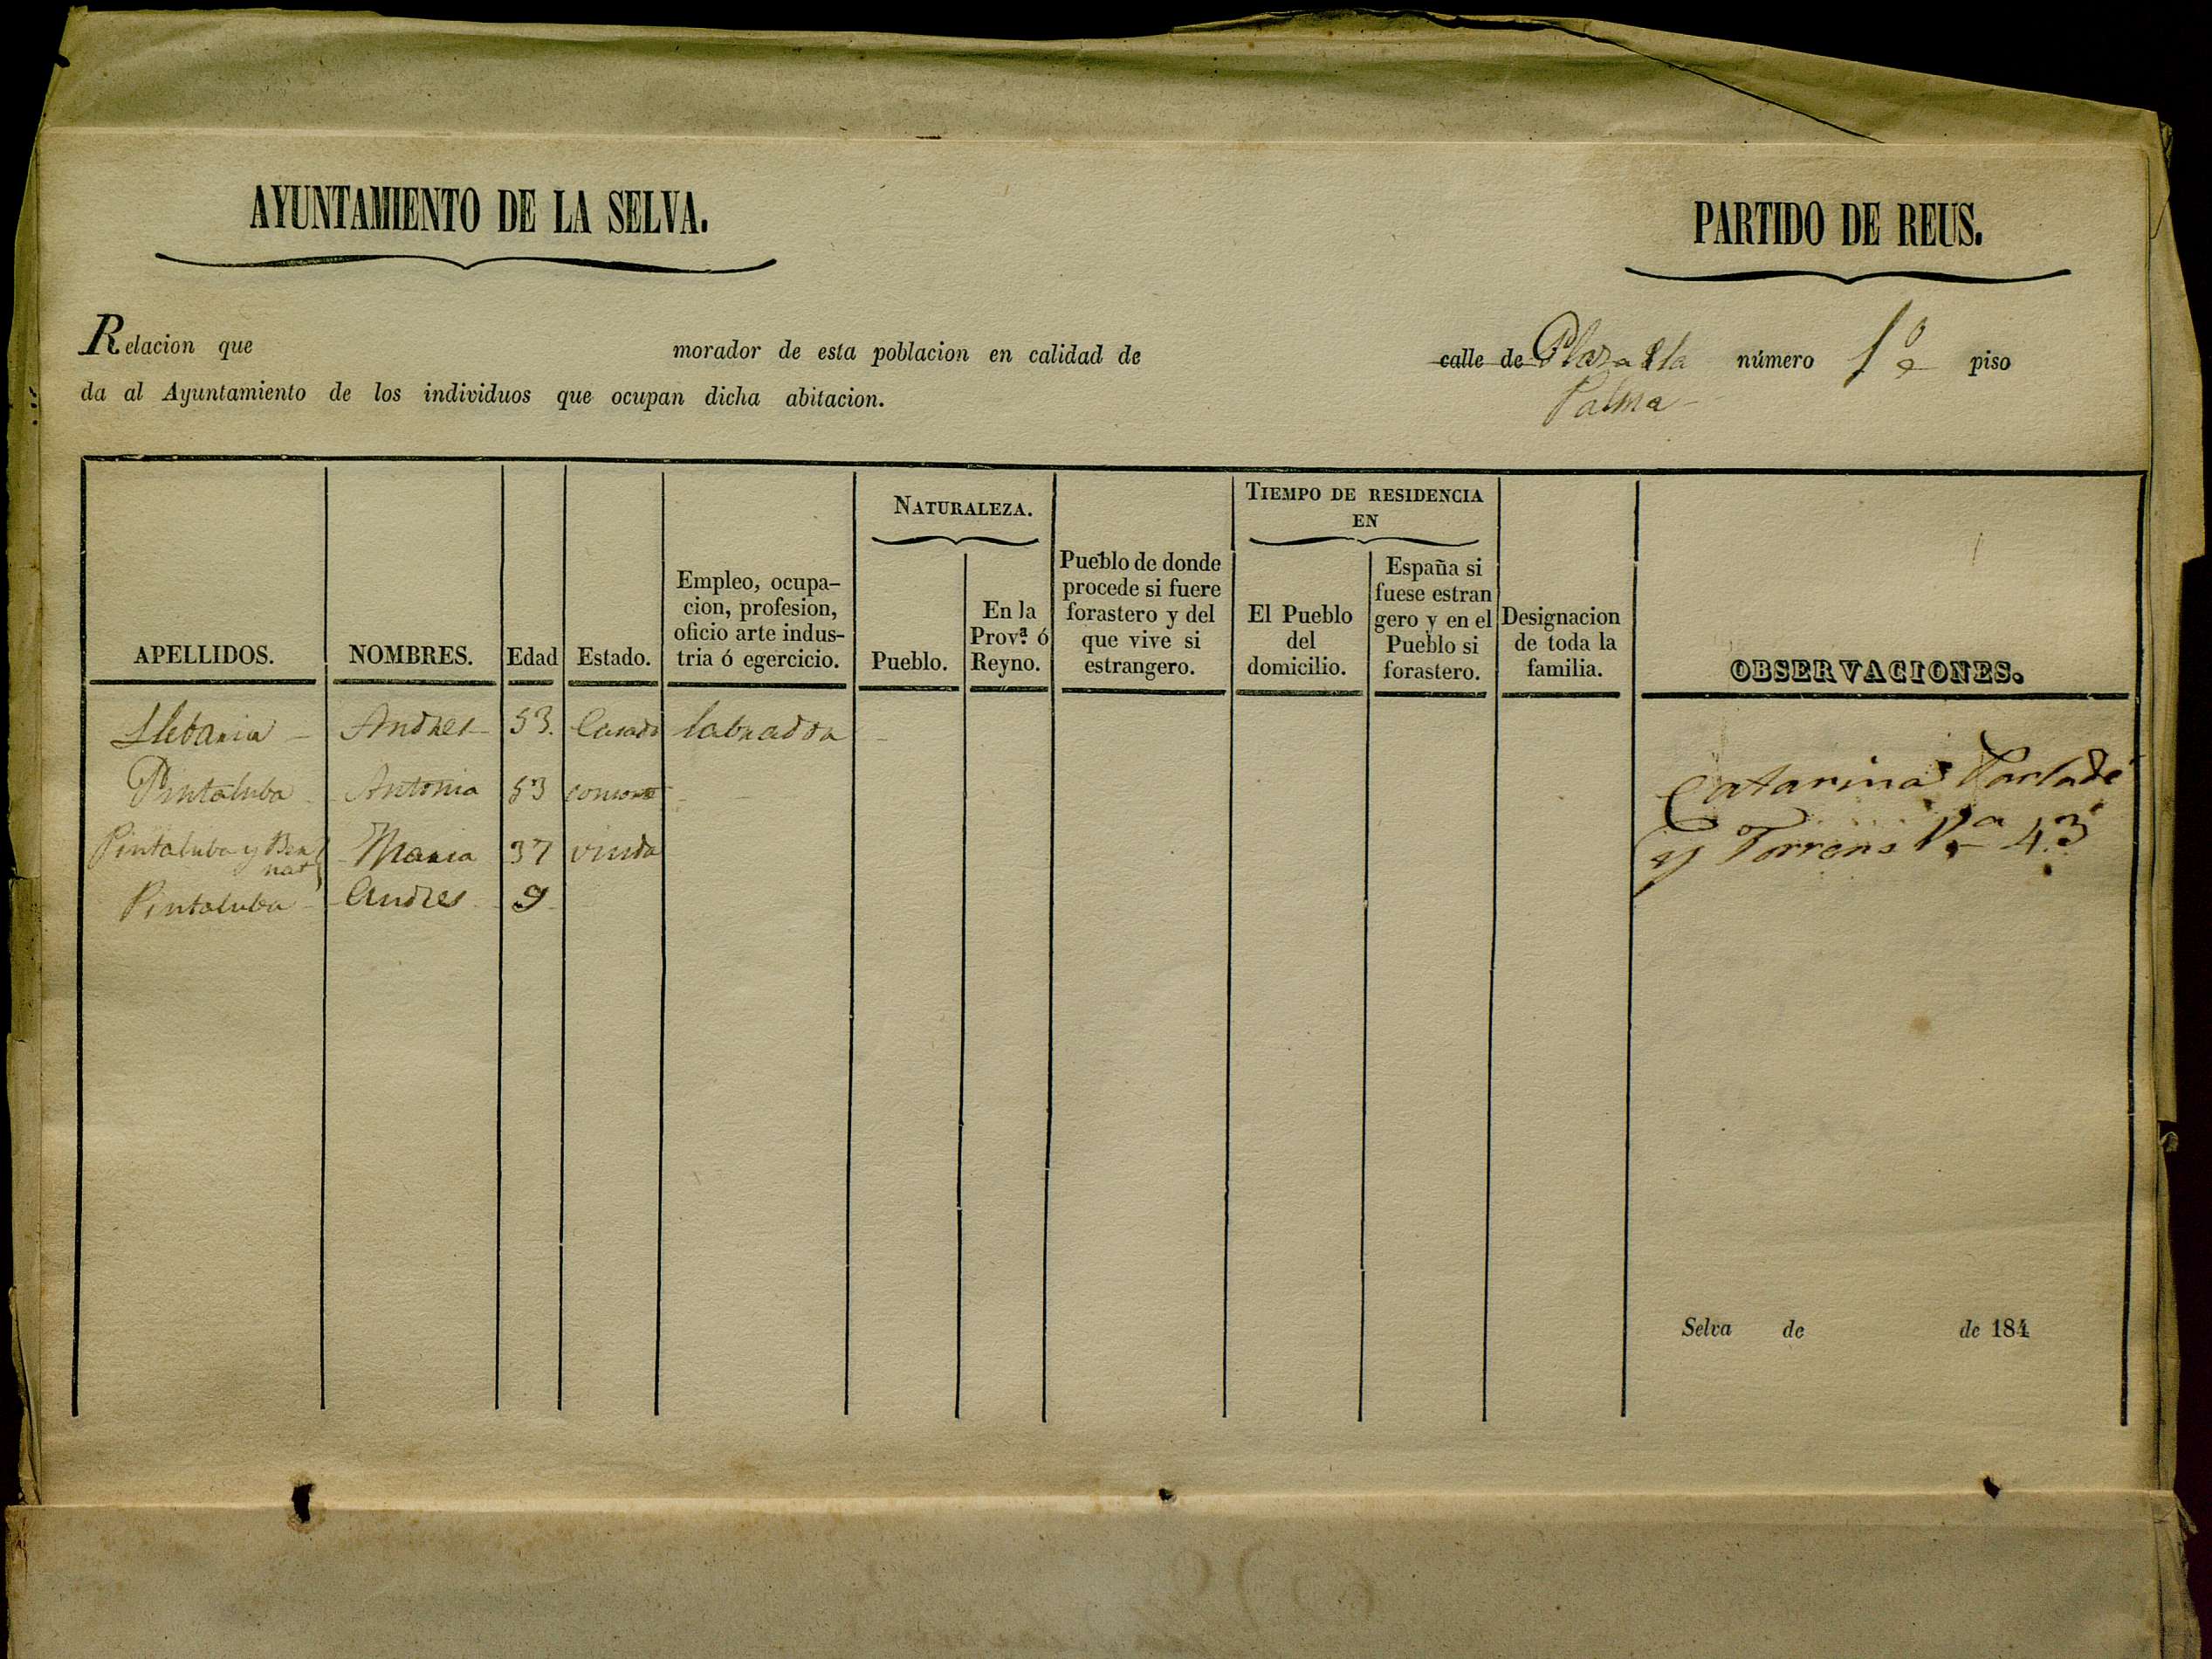 AYUNTAMIENTO DE LA SELVA.
PARTIDO DE REUS.
Relacion que morador de esta poblacion en calidad de calle de Plaza dla número 1º piso
Palma
da al Ayuntamiento de los individuos que ocupan dicha abitacion.
APELLIDOS.
NOMBRES.
Edad
Estado.
Empleo, ocupa-
cion, profesion,
oficio arte indus-
tria ó egercicio.
NATURALEZA.
Pueblo.
En la
Prov.ª ó
Reyno.
Pueblo de donde
procede si fuere
forastero y del
que vive si
estrangero.
TIEMPO DE RESIDENCIA
EN
El Pueblo
del
domicilio.
España si
fuese estran
gero y en el
Pueblo si
forastero.
Designacion
de toda la
familia.
OBSERVACIONES.
Llebaria Andres 53. Casado labrador
Pintaluba Antonia 53 consorte
Pintaluba y Bon
nat Maria 37 viuda
Pintaluba Andres 9
Catarina
y Torrens Vª 43
Selva de de 184